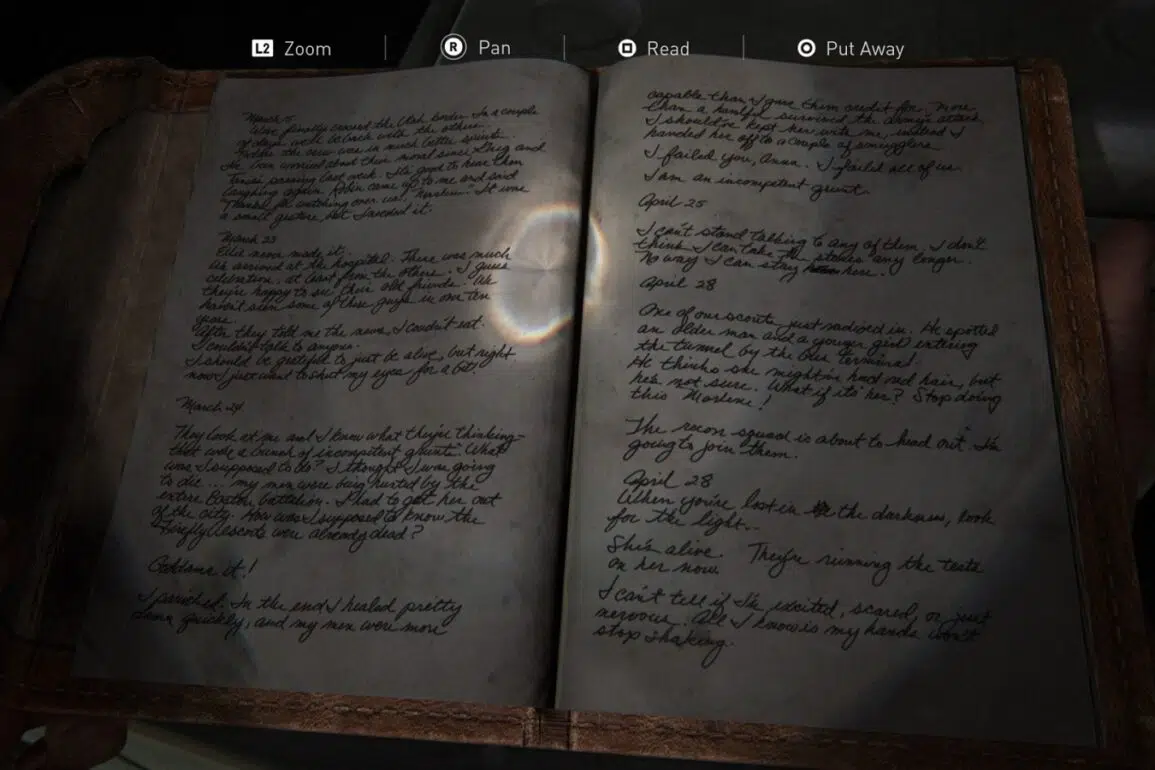 L2 Zoom R Pan Read Put Away
March
We've finally crossed the Utah border. In a couple
of days we'll be back with the others.
Today the crew were in much better spirits.
I've been worried about their moral since Greg and
passing last week. It's good to hear them
laughing again. Robin came up to me and said
"Thanks for watching over us, It was
a small gesture, but I needed it.
March 23
Ellie never made it.
We arrived at the hospital. There was much
celebration, at least from the others. I guess
they're happy to see their old friends. We
haven't seen some of these guys in over ten
years.
After they told me the news, I couldn't eat.
I couldn't talk to anyone.
I should be grateful to just be alive, but right
now I just want to shut my eyes for a bit.
March 24
They look at me and I know what they're thinking-
that we're a bunch of incompetent grunts. What
was I supposed to do? I thought I was going
to die ... my men were being hunted by the
entire Boston battalion. I had to get her out
of the city. How was I supposed to know the
Firefly escorts were already dead?
Goddamn it!
I panicked. In the end I healed pretty
damn quickly, and my men were more
capable than I gave them credit for. More
than a handful survived the army's attack.
I should've kept her with me, instead I
handed her off to a couple of smugglers.
I failed you, Anna. I failed all of us.
I am an incompetent grunt.
April 25
I can't stand talking to any of them. I don't
think I can take the stares any longer.
No way I can stay here.
April 28
One of our scouts just radioed in. He spotted
an older man and a younger girl entering
the tunnel by the bus terminal.
He thinks she might've had red hair, but
he's not sure. What if it's her? Stop doing
this Marlene!
The recon squad is about to head out. I'm
going to join them.
April 28
When you're lost in the darkness, look
for the light...
She's alive. They're running the tests
on her now.
I can't tell if I'm excited, scared, or just
nervous. All I know is my hands won't
stop shaking.